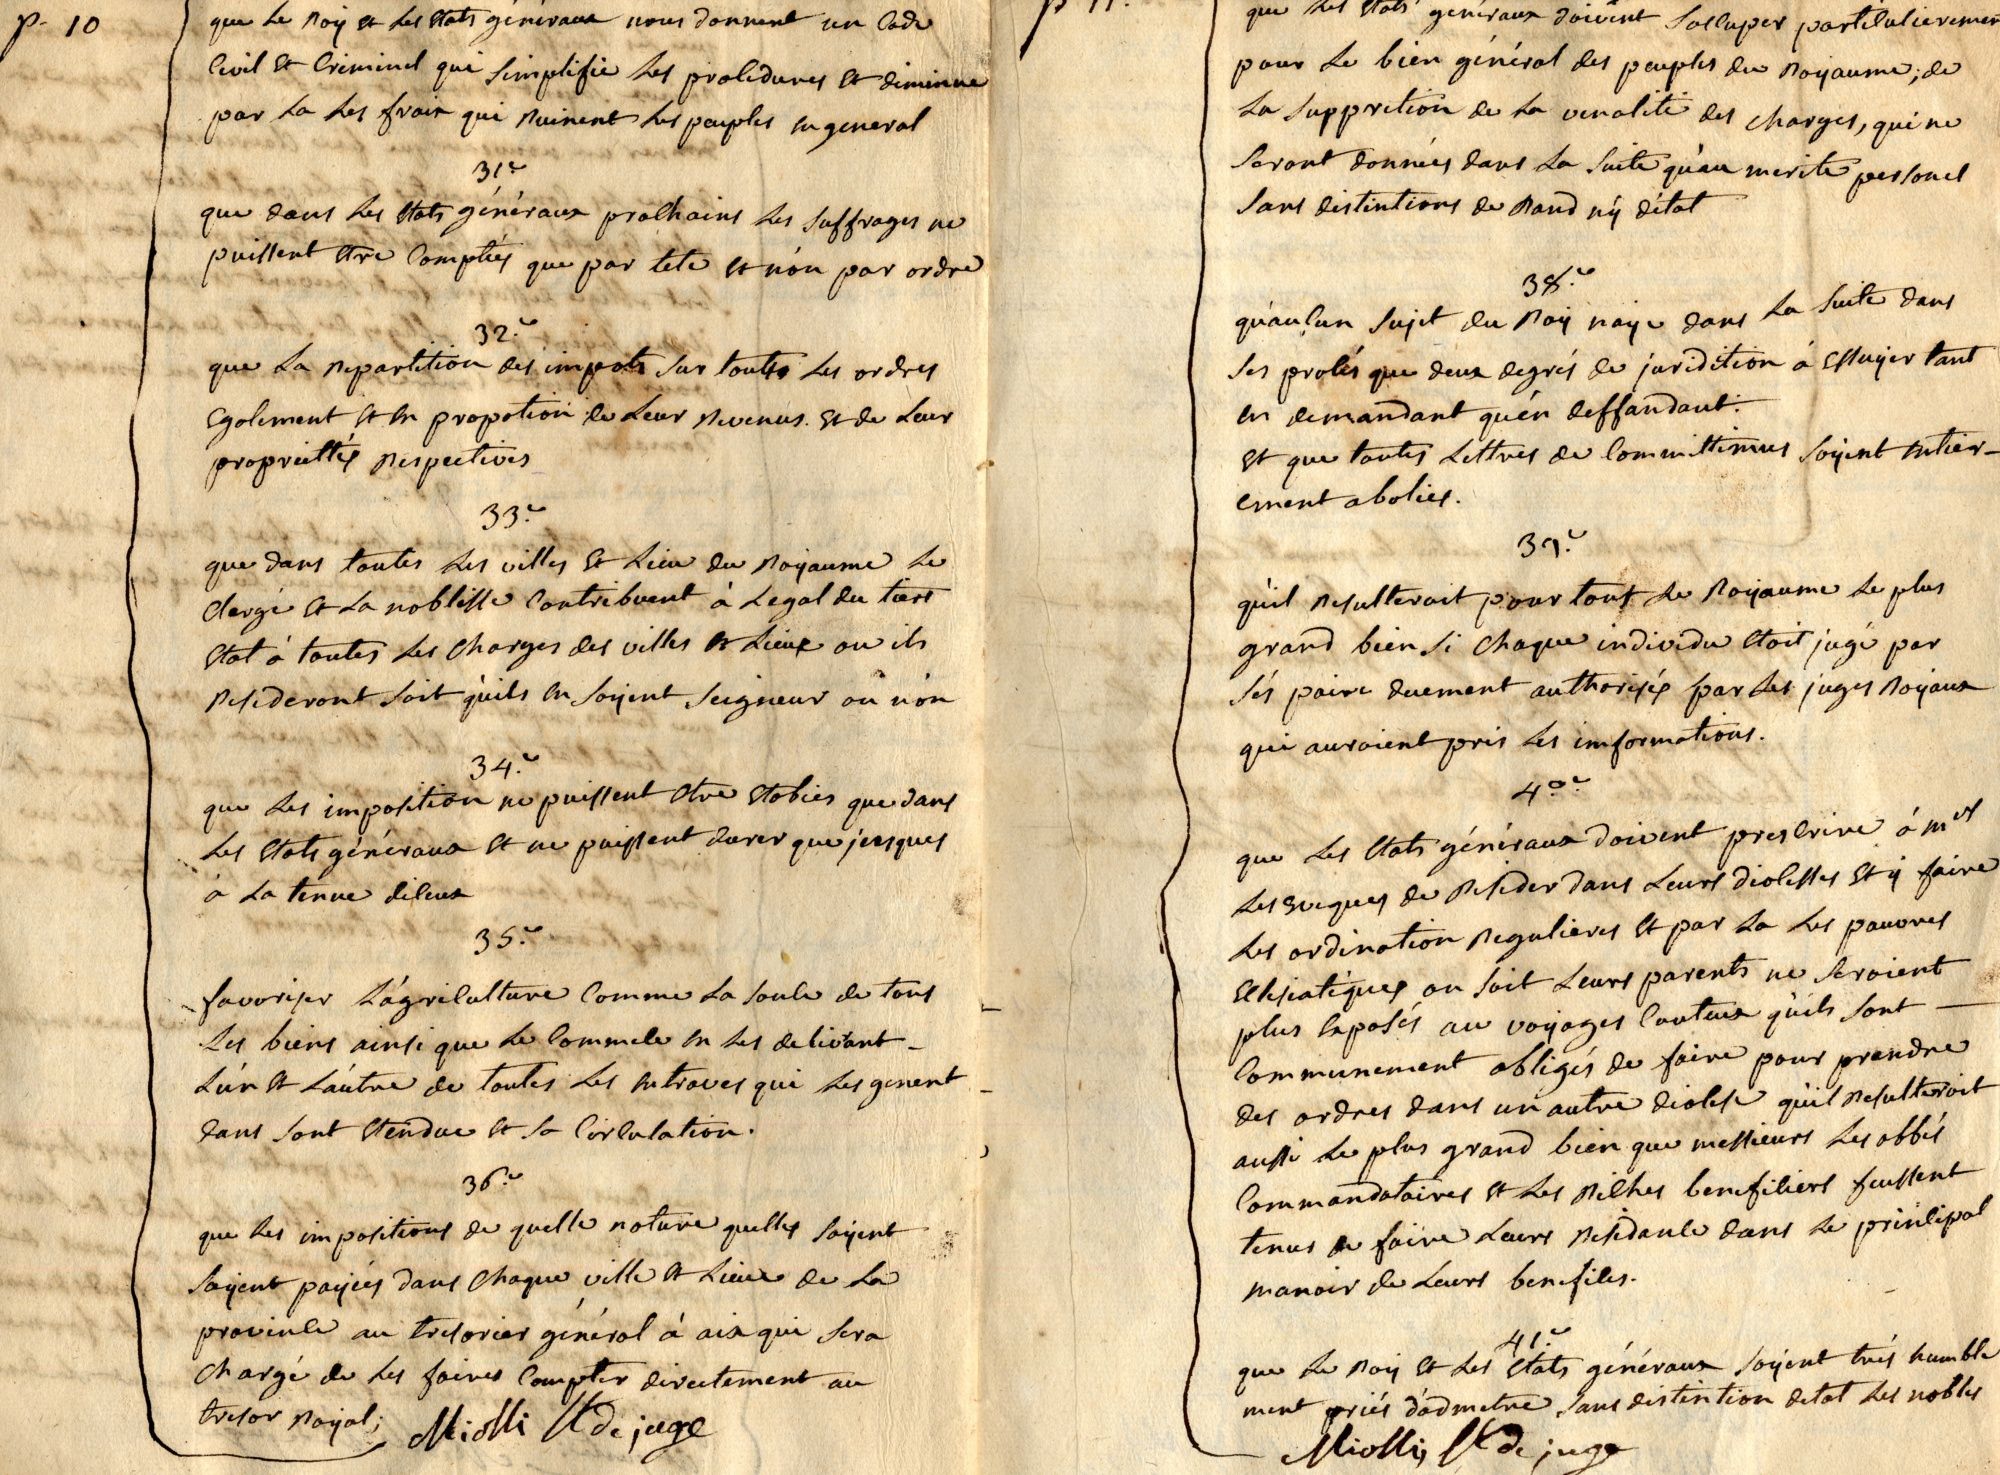 p. 10
que Le Roy et Les Etats généraux nous donnent un Code
Civil et Criminel qui simplifie Les procedures et diminue
par La Les fraix qui Ruinent Les peuples en general
31e
que dans Les Etats généraux prochains Les suffrages ne
puissent etre Comptés que par tete et nón par ordre
32.e
que La Repartition des impots sur touts Les ordres
egalement et en propotion de Leur Revenus. et de Leur
propriettés Respectives
33.e
que dans toutes Les villes et Lieu du Royaume Le
Clergé et La noblesse Contribuent á Legal du tiers
Etat á toutes Les Charges des villes et Lieux ou ils
Resideront soit quils en soyent seigneur ou nón
34.e
que Les imposition ne puissent etre etablies que dans
Les Etats généraux et ne puissent durer que jusques
á La tenue diceux
35.e
favoriser Lágriculture Comme La soule de tous
Les biens ainsi que Le Commele en Les delivrant
Lún et Láutre de toutes Les entraves qui Les genent
dans sont etendue et sa Circulation.
36.e
que Les impositions de quelle nature quelles soyent
soyent payées dans Chaque ville et Lieux de La
province au tresorier général á aix qui sera
Chargé de Les faires Compter directement au
tresor Royal;
Miollis Lt de juge
p 11.
que Les Etats généraux doivent soccuper particulierement
pour Le bien général des peuples du Royaume; de
La suppretion de La venalité des charges, qui ne
seront données dans La suite qu'au merite personel
sans distintions de Rand ny détat
38.e
quáucun sujet du Roy naye dans La suite dans
ses procés que deux degrés de juridition á essuyer tant
en demandant quén deffandant.
et que toutes Lettres de Committimus soyent entier-
ement abolies.
39.e
quil Resulteroit pour tout Le Royaume Le plus
grand bien si Chaque individu etoit jugé par
sés paire duement authorisés par Les juges Royaux
qui auroient pris Les imformations.
40.e
que Les Etats généraux doivent prescrire á mrs
Les eveques de Resider dans Leurs diocesses et y faire
Les ordination Regulieres et par La Les pauvres
eclesiatiques ou soit Leurs parents ne seroient
plus exposés au voyages Couteux quils sont
Communement obligés de faire pour prendre
des ordres dans un autre diocese quil Resulteroit
aussi Le plus grand bien que messieurs Les abbés
Commandataires et Les Riches beneficiers fussent
tenus de faire Leurs Residance dans Le principal
manoir de Leurs benefices.
41.e
que Le Roy et Les Etats généraux soyent trés humble
ment priés dádmetre sans distintion detat Les nobles
Miollis Lt de juge